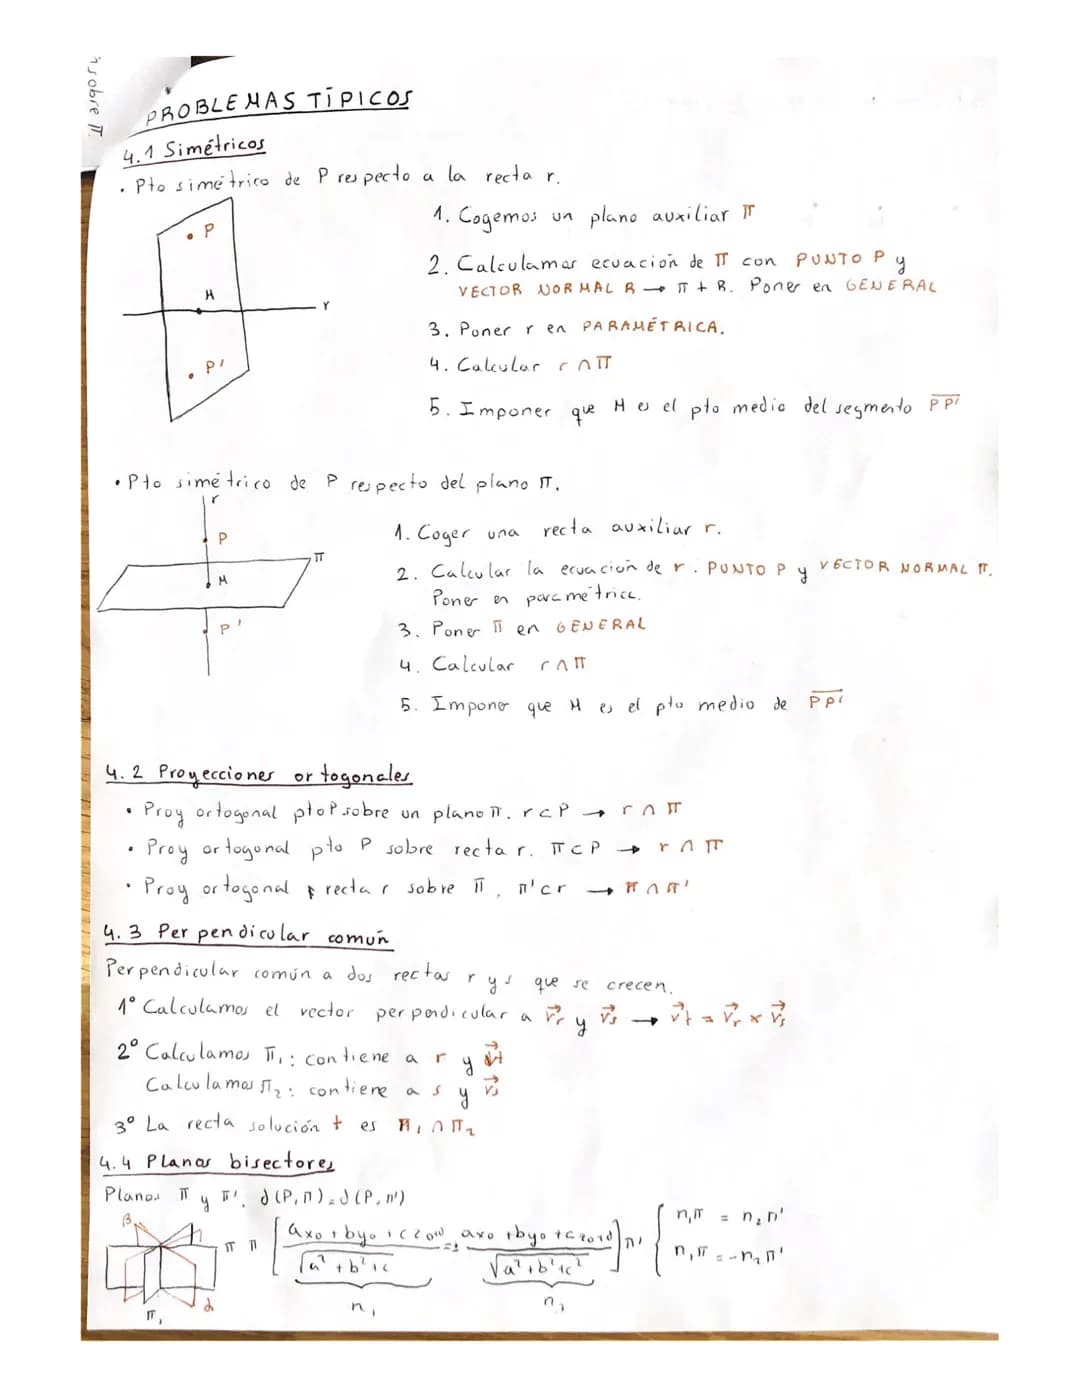 n sobre π.
PROBLEMAS TÍPICOS
4.1 Simétricos
• Pto simétrico de P respecto a la recta r.
P
M
r
P'
1. Cogemos un plano auxiliar π
2. Calculamos ecuación de π con PUNTO P y
VECTOR NORMAL R → π + R. Poner en GENERAL
3. Poner r en PARAMÉTRICA.
4. Calcular r∩π
5. Imponer que M es el pto medio del segmento PP'
• Pto simétrico de P respecto del plano π.
r
P
π
M
P'
1. Coger una recta auxiliar r.
2. Calcular la ecuación de r. PUNTO P y VECTOR NORMAL π.
Poner en paramétrica.
3. Poner π en GENERAL
4. Calcular r∩π
5. Imponer que M es el pto medio de PP'
4.2 Proyecciones ortogonales
• Proy ortogonal pto P sobre un plano π. r⊂P → r∩π
• Proy ortogonal pto P sobre recta r. π⊂P → r∩π
• Proy ortogonal recta r sobre π, π'⊂r → π∩π'
4.3 Perpendicular común
Perpendicular común a dos rectas r y s que se crecen.
1º Calculamos el vector perpendicular a v⃗r y v⃗s → v⃗t = v⃗r × v⃗s
2º Calculamos π₁: contiene a r y v⃗t
Calculamos π₂: contiene a s y v⃗s
3º La recta solución t es π₁∩π₂
4.4 Planos bisectores
Planos π y π'. d(P,π)=d(P,π')
β
π
π₁
α
π [ax₀+by₀+cz₀+d / √a²+b²+c = ± ax₀+by₀+cz₀+d / √a²+b²+c²] π'
n₁
n₂
n₁π = n₂π'
n₁π = -n₂π'